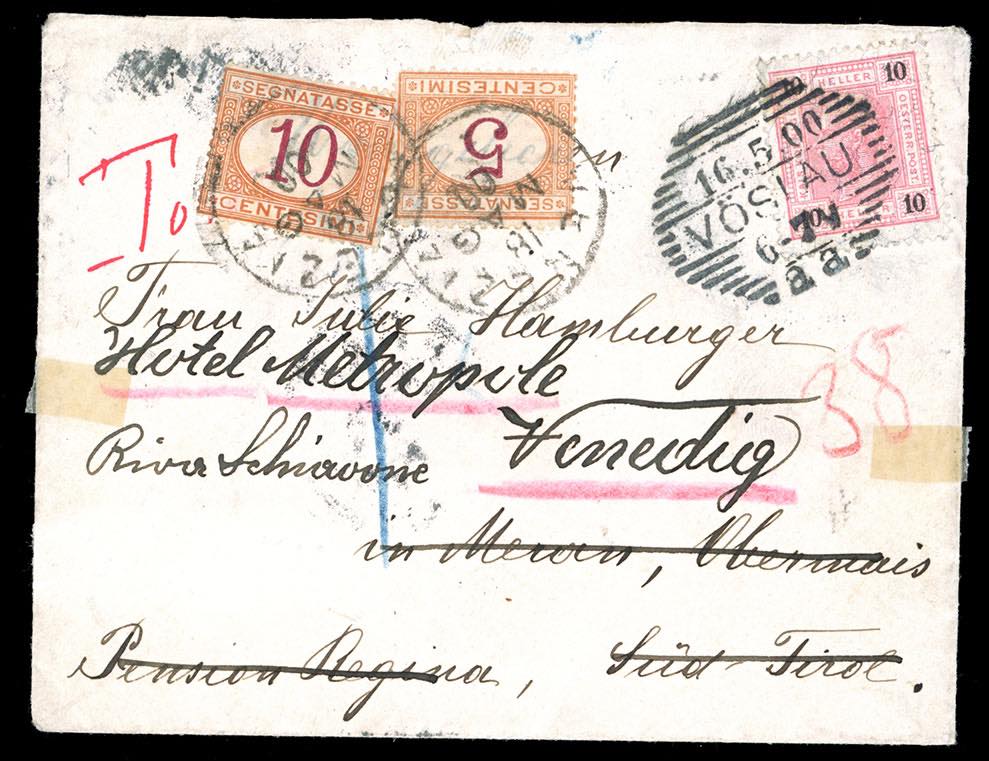 SEGNATASSE
10
CENTESIMI
CENTESIMI
5
SEGNATASSE
HELLER
10
OESTERR. POST.
10
HELLER
16.5.00
VÖSLAU
6-7N
a a
VENEZIA
18
MAG
00
T
38
Frau Julie Hamburger
Hotel Metropole
Venedig
Riva Schiavone
in Meran, Obermais
Pension Regina, Süd-Tirol.